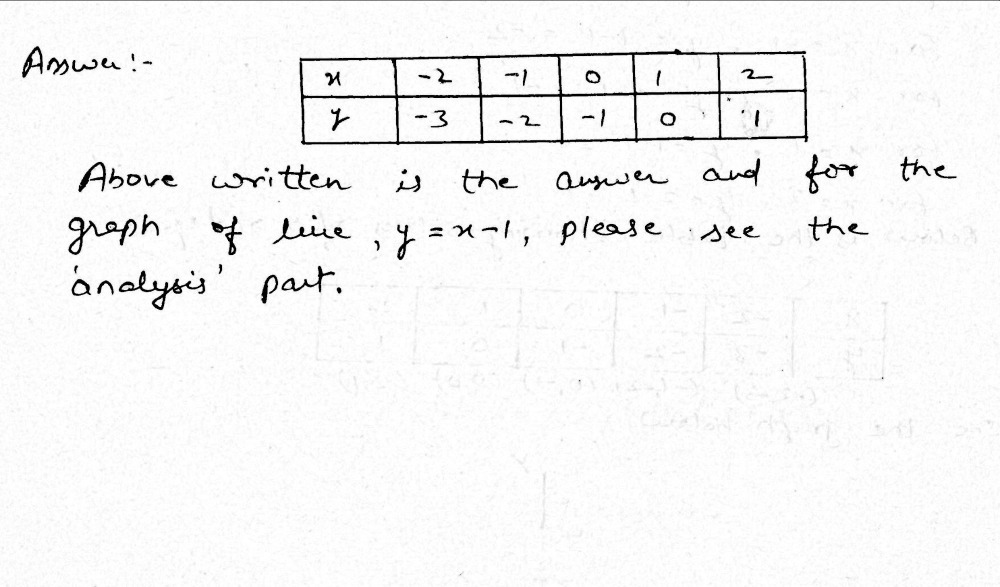 Answer:-
x -2 -1 0 1 2
y -3 -2 -1 0 1
Above written is the answer and for the
graph of line, y = x-1, please see the
'analysis' part.